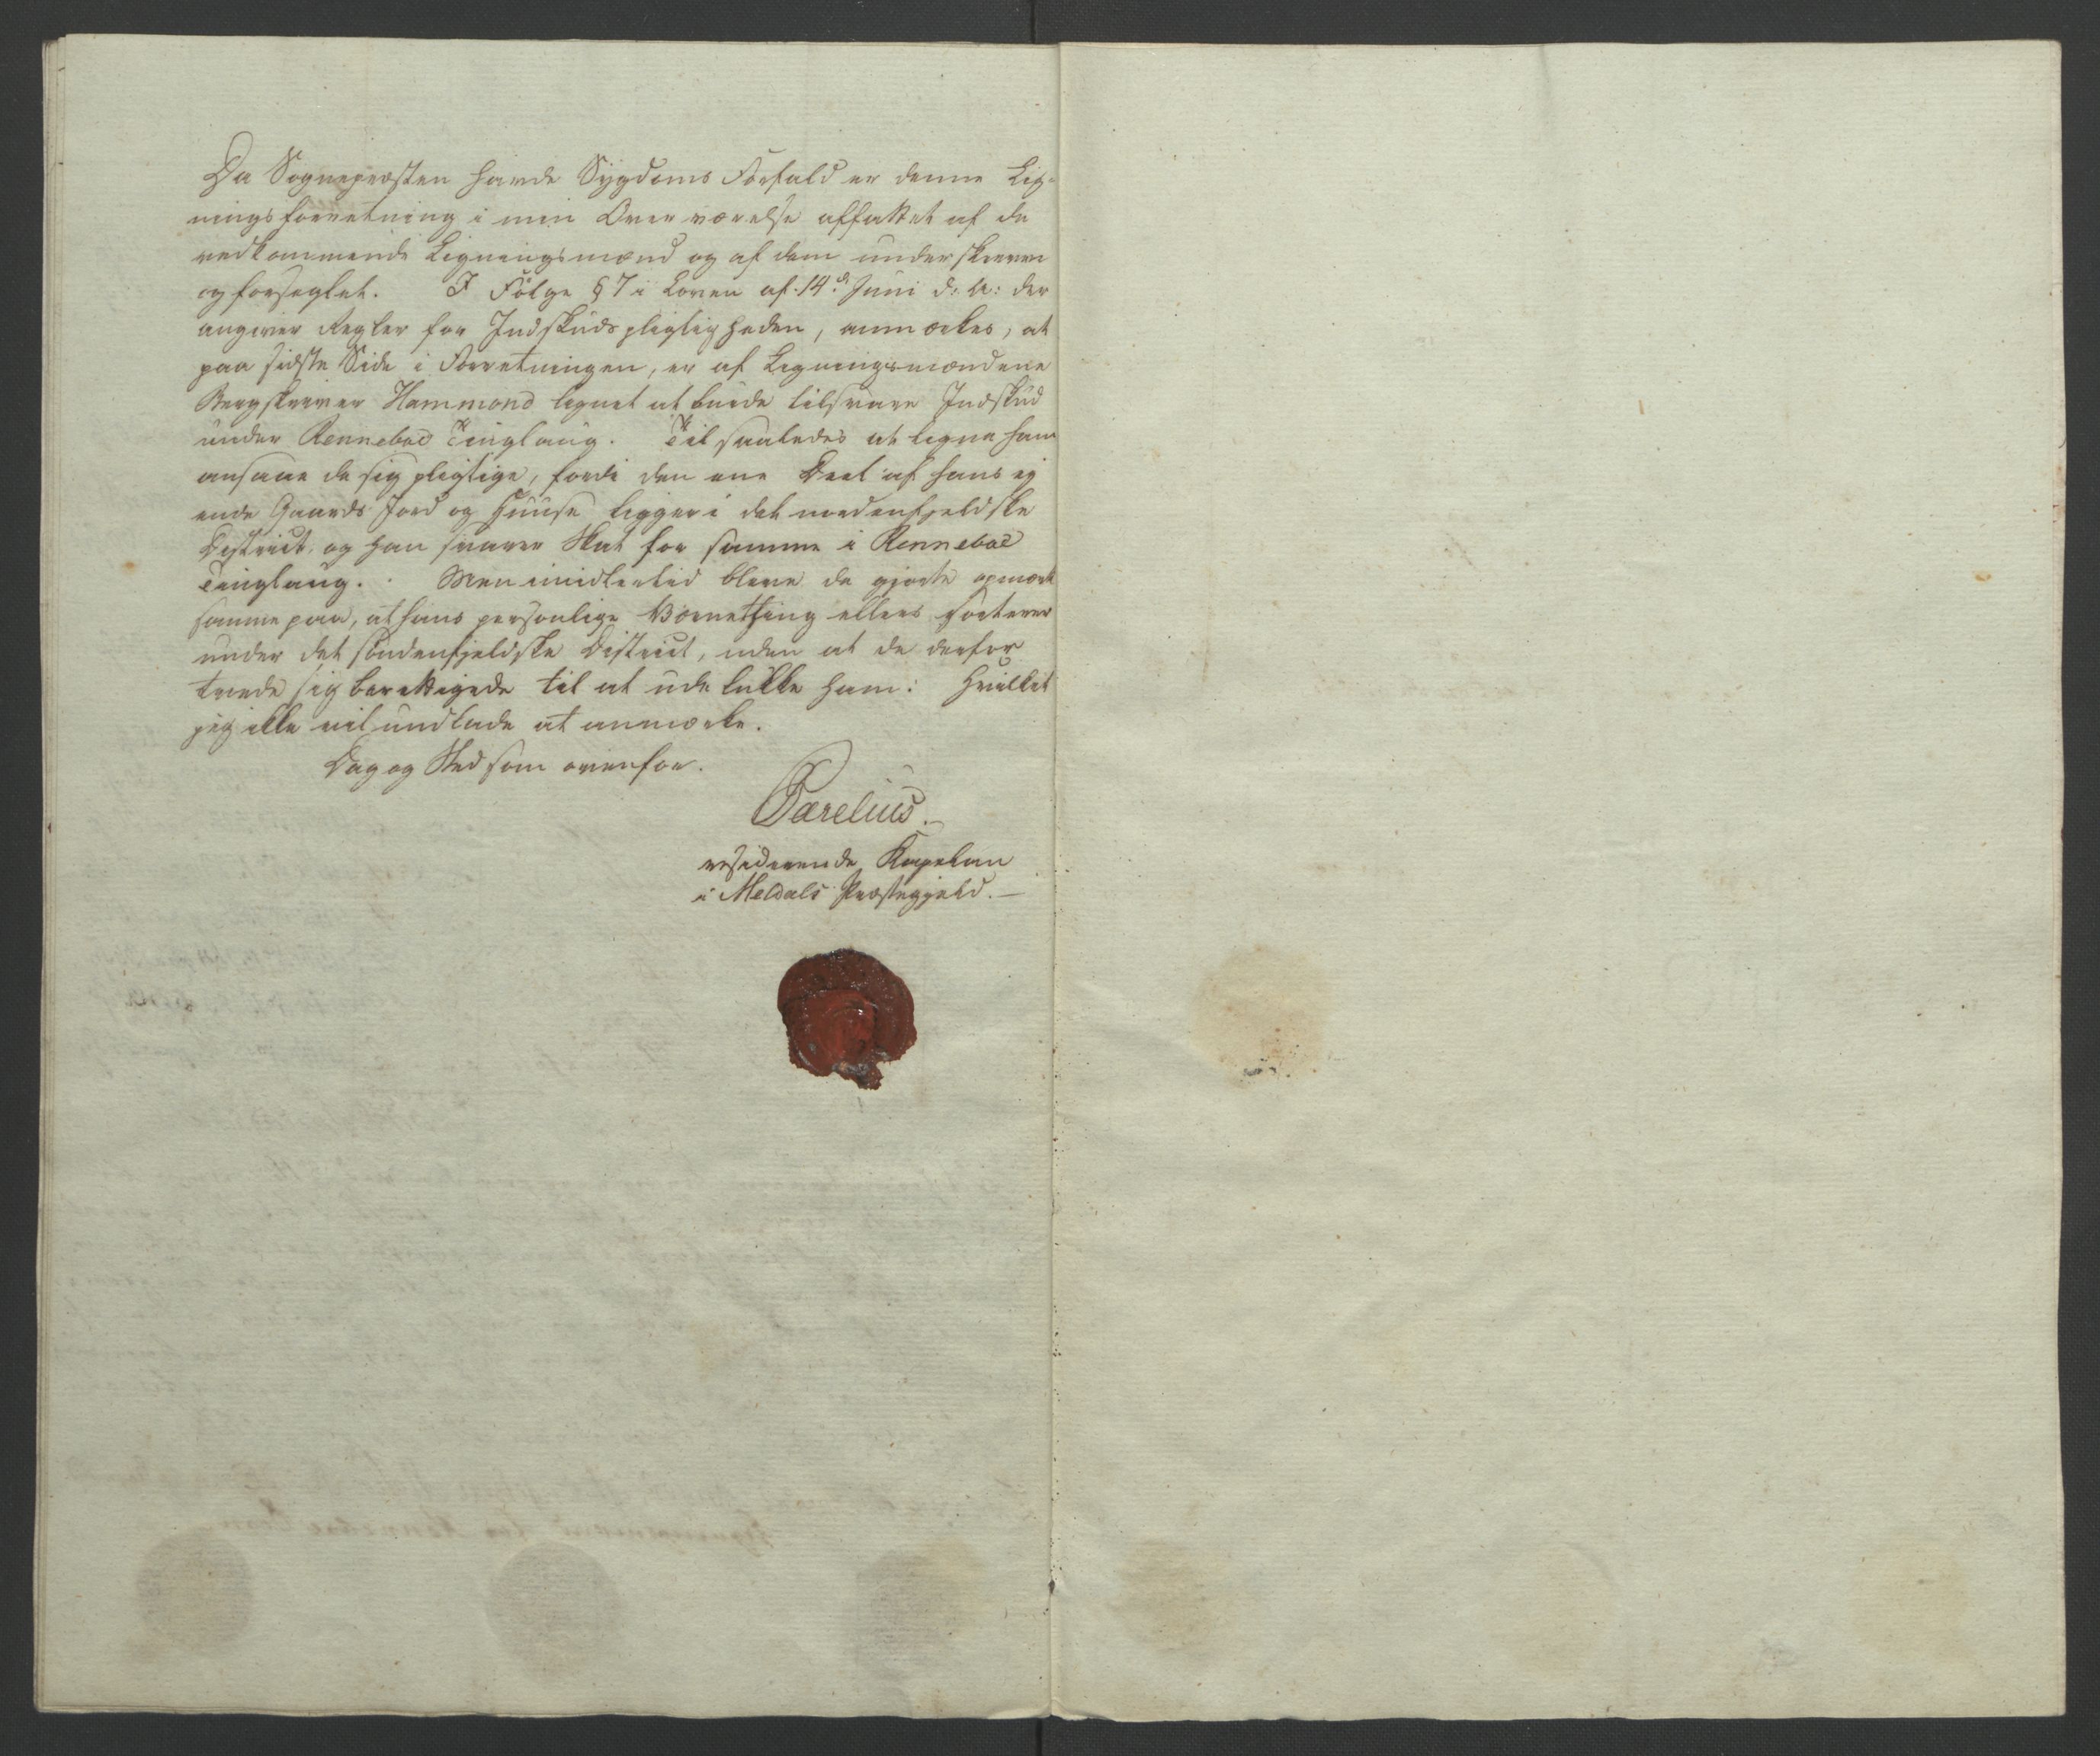 Da Sognepræsten havde Sygdoms Forfald er denne Lig-
ningsforretning i min Overværelse affattet af de
vedkommende Ligningsmænd og af dem underskreven
og forseglet. I Følge § 7 i Loven af 14d Juni d: A: der
angiver Regler for Indskudspligtigheden, anmærkes, at
paa sidste Side i Forretningen, er af Ligningsmændene
Bergskriver Hammond lignet at burde tilsvare Indskud
under Renneboe Tinglaug. Til saaledes at ligne ham
ansaae de sig pligtige, fordi den ene Deel af hans ej
ende Gaards Jord og Huuse ligger i det nordenfjeldske
District, og han svarer Skat for samme i Renneboe
Tinglaug. Men imidlertid bleve de gjorte opmærk
somme paa, at hans personlige Værnething ellers sorterer
under det søndenfjeldske District, uden at de derfor
troede sig berettigede til at udelukke ham: Hvilket
jeg ikke vil undlade at anmærke.
Dag og Sted som ovenfor.
Parelius.
residerende Kapelan
i Meldals Præstegjeld.